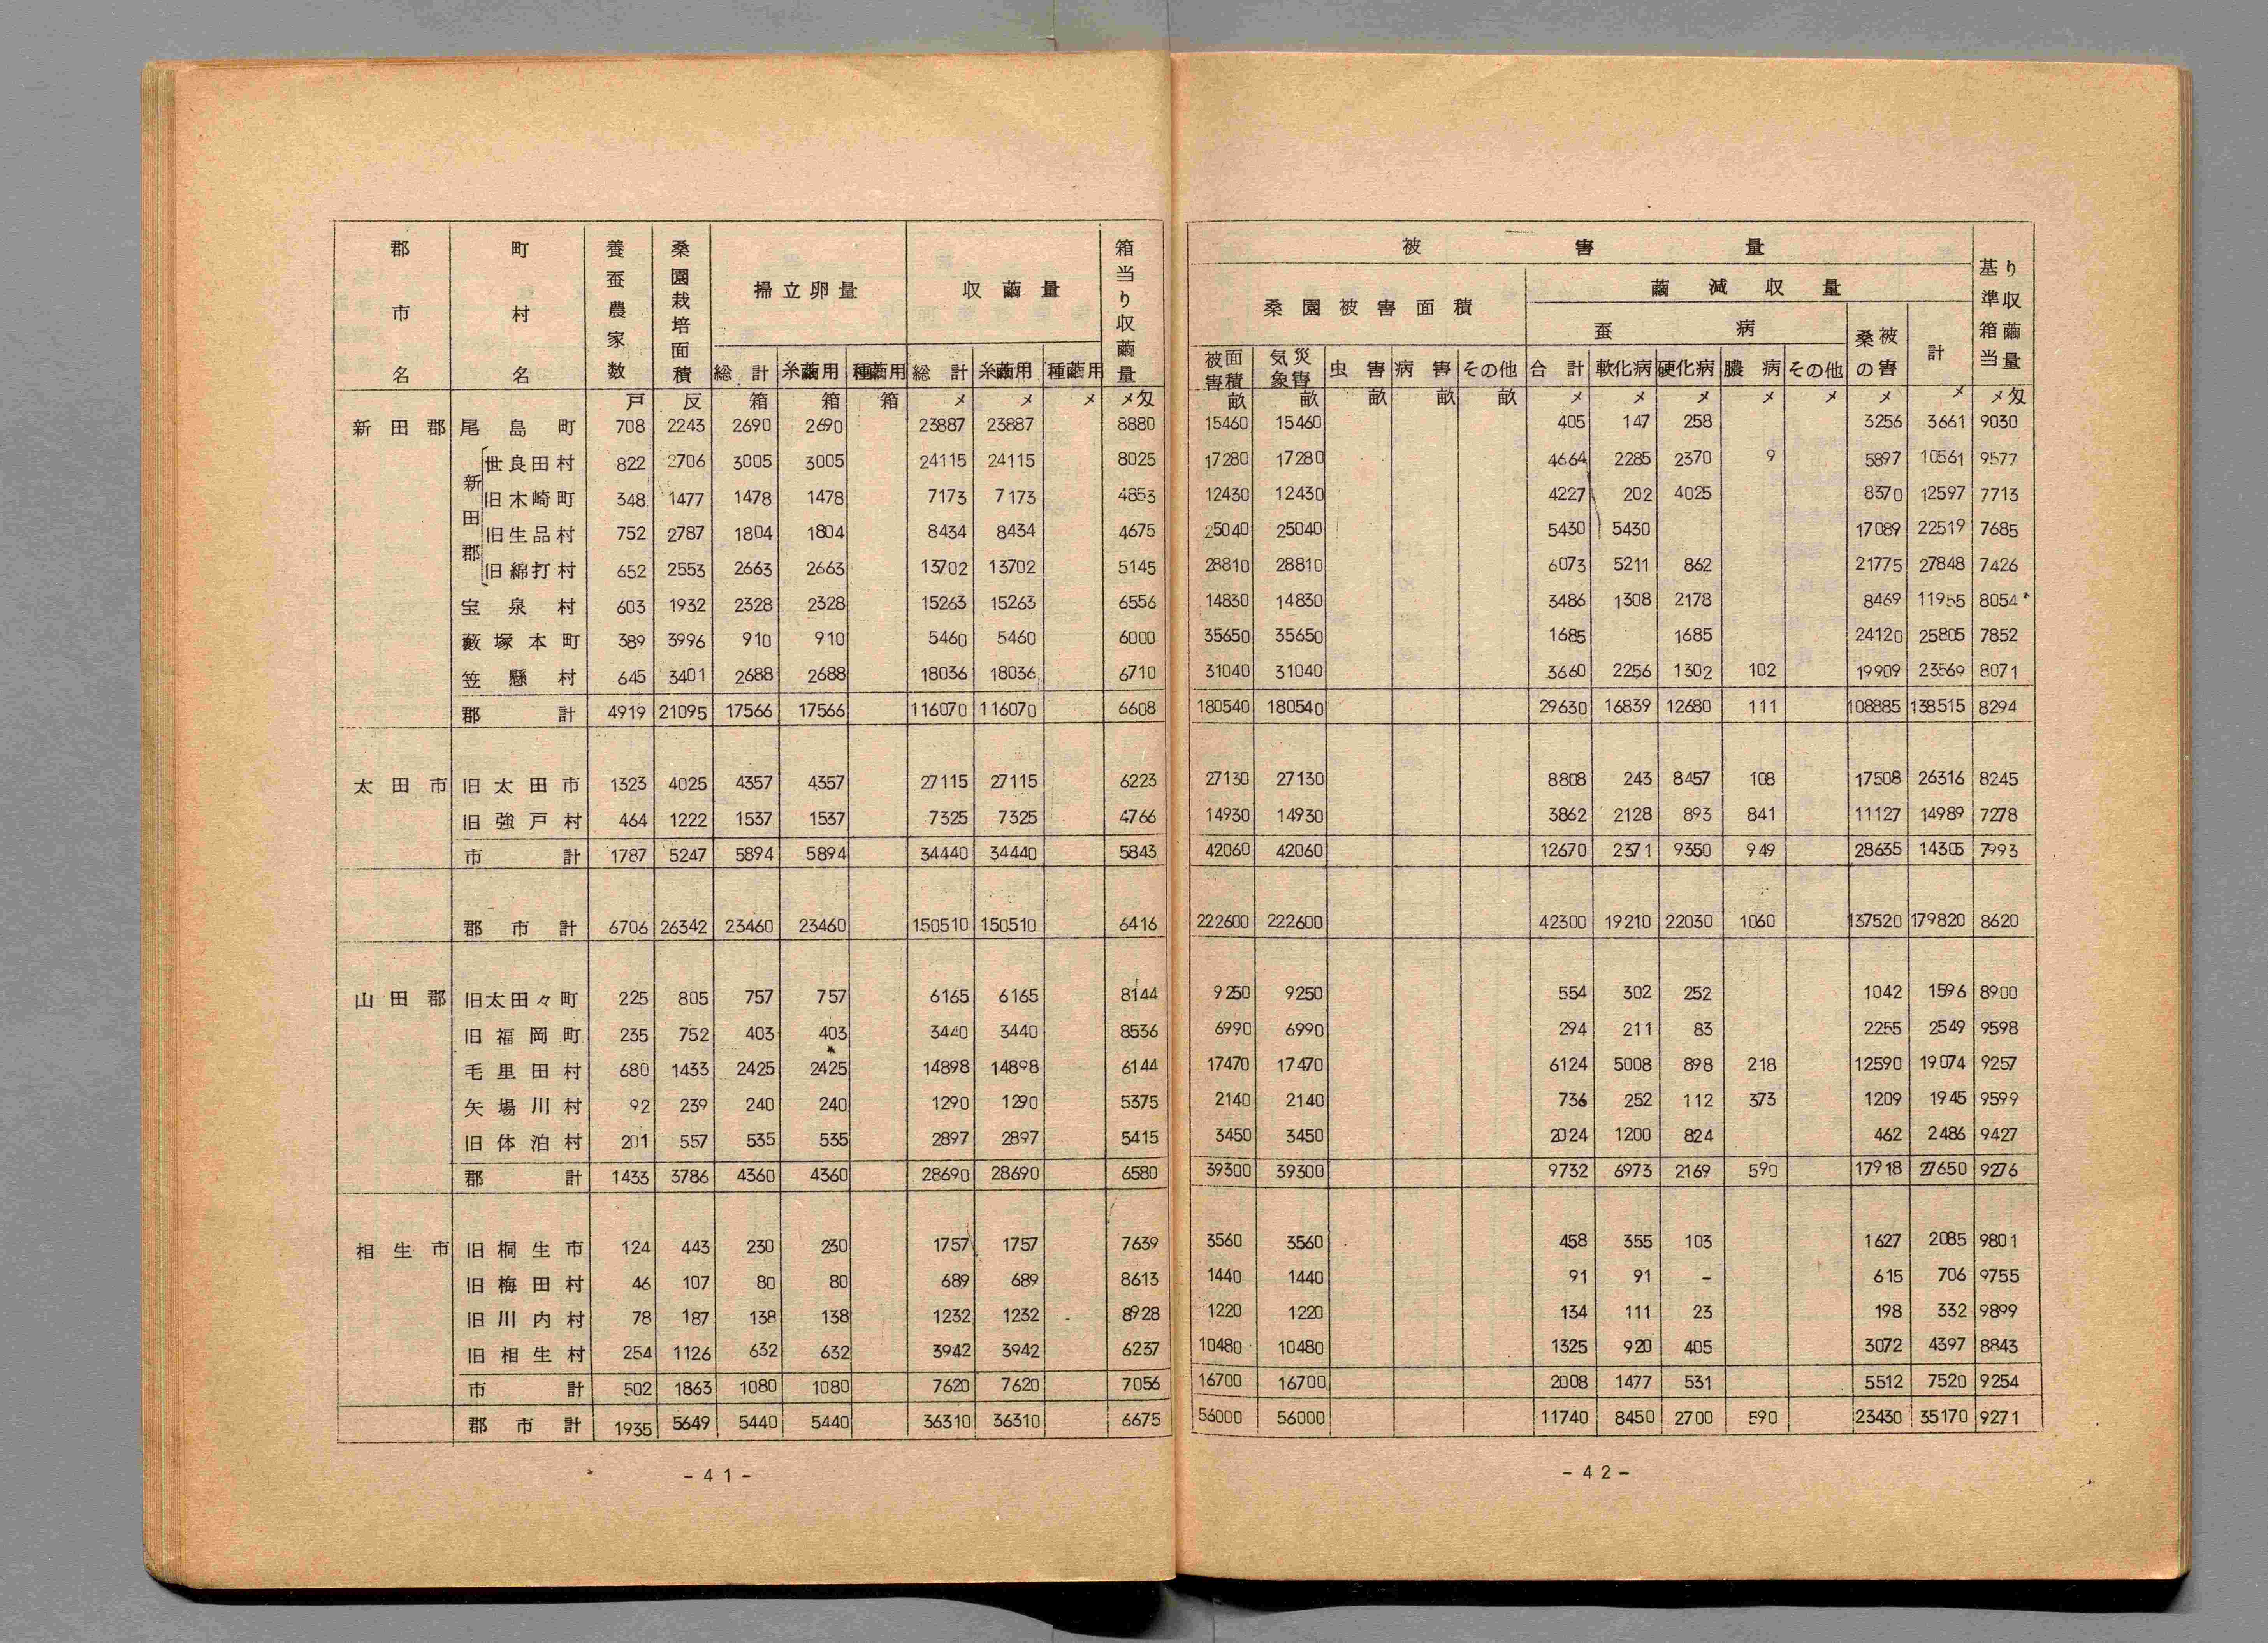 郡市名 町村名 養蚕農家数 桑園栽培面積 掃立卵量 収繭量 箱当り収繭量
総計 糸繭用 種繭用 総計 糸繭用 種繭用
戸 反 箱 箱 箱 メ メ メ メ匁
新田郡 尾島町 708 2243 2690 2690 23887 23887 8880
新田郡 世良田村 822 2706 3005 3005 24115 24115 8025
旧木崎町 348 1477 1478 1478 7173 7173 4853
旧生品村 752 2787 1804 1804 8434 8434 4675
旧綿打村 652 2553 2663 2663 13702 13702 5145
宝泉村 603 1932 2328 2328 15263 15263 6556
藪塚本町 389 3996 910 910 5460 5460 6000
笠懸村 645 3401 2688 2688 18036 18036 6710
郡計 4919 21095 17566 17566 116070 116070 6608
太田市 旧太田市 1323 4025 4357 4357 27115 27115 6223
旧強戸村 464 1222 1537 1537 7325 7325 4766
市計 1787 5247 5894 5894 34440 34440 5843
郡市計 6706 26342 23460 23460 150510 150510 6416
山田郡 旧太田々町 225 805 757 757 6165 6165 8144
旧福岡町 235 752 403 403 3440 3440 8536
毛里田村 680 1433 2425 2425 14898 14898 6144
矢場川村 92 239 240 240 1290 1290 5375
旧体泊村 201 557 535 535 2897 2897 5415
郡計 1433 3786 4360 4360 28690 28690 6580
相生市 旧桐生市 124 443 230 230 1757 1757 7639
旧梅田村 46 107 80 80 689 689 8613
旧川内村 78 187 138 138 1232 1232 8928
旧相生村 254 1126 632 632 3942 3942 6237
市計 502 1863 1080 1080 7620 7620 7056
郡市計 1935 5649 5440 5440 36310 36310 6675
-41-
被害量 基準箱当り収繭量
桑園被害面積 繭減収量
蚕病 桑の被害 計
被害面積 気象災害 虫害 病害 その他 合計 軟化病 硬化病 膿病 その他
畝 畝 畝 畝 畝 メ メ メ メ メ メ メ メ匁
15460 15460 405 147 258 3256 3661 9030
17280 17280 4664 2285 2370 9 5897 10561 9577
12430 12430 4227 202 4025 8370 12597 7713
25040 25040 5430 5430 17089 22519 7685
28810 28810 6073 5211 862 21775 27848 7426
14830 14830 3486 1308 2178 8469 11955 8054
35650 35650 1685 1685 24120 25805 7852
31040 31040 3660 2256 1302 102 19909 23569 8071
180540 180540 29630 16839 12680 111 108885 138515 8294
27130 27130 8808 243 8457 108 17508 26316 8245
14930 14930 3862 2128 893 841 11127 14989 7278
42060 42060 12670 2371 9350 949 28635 14305 7993
222600 222600 42300 19210 22030 1060 137520 179820 8620
9250 9250 554 302 252 1042 1596 8900
6990 6990 294 211 83 2255 2549 9598
17470 17470 6124 5008 898 218 12590 19074 9257
2140 2140 736 252 112 373 1209 1945 9599
3450 3450 2024 1200 824 462 2486 9427
39300 39300 9732 6973 2169 590 17918 27650 9276
3560 3560 458 355 103 1627 2085 9801
1440 1440 91 91 - 615 706 9755
1220 1220 134 111 23 198 332 9899
10480 10480 1325 920 405 3072 4397 8843
16700 16700 2008 1477 531 5512 7520 9254
56000 56000 11740 8450 2700 590 23430 35170 9271
-42-